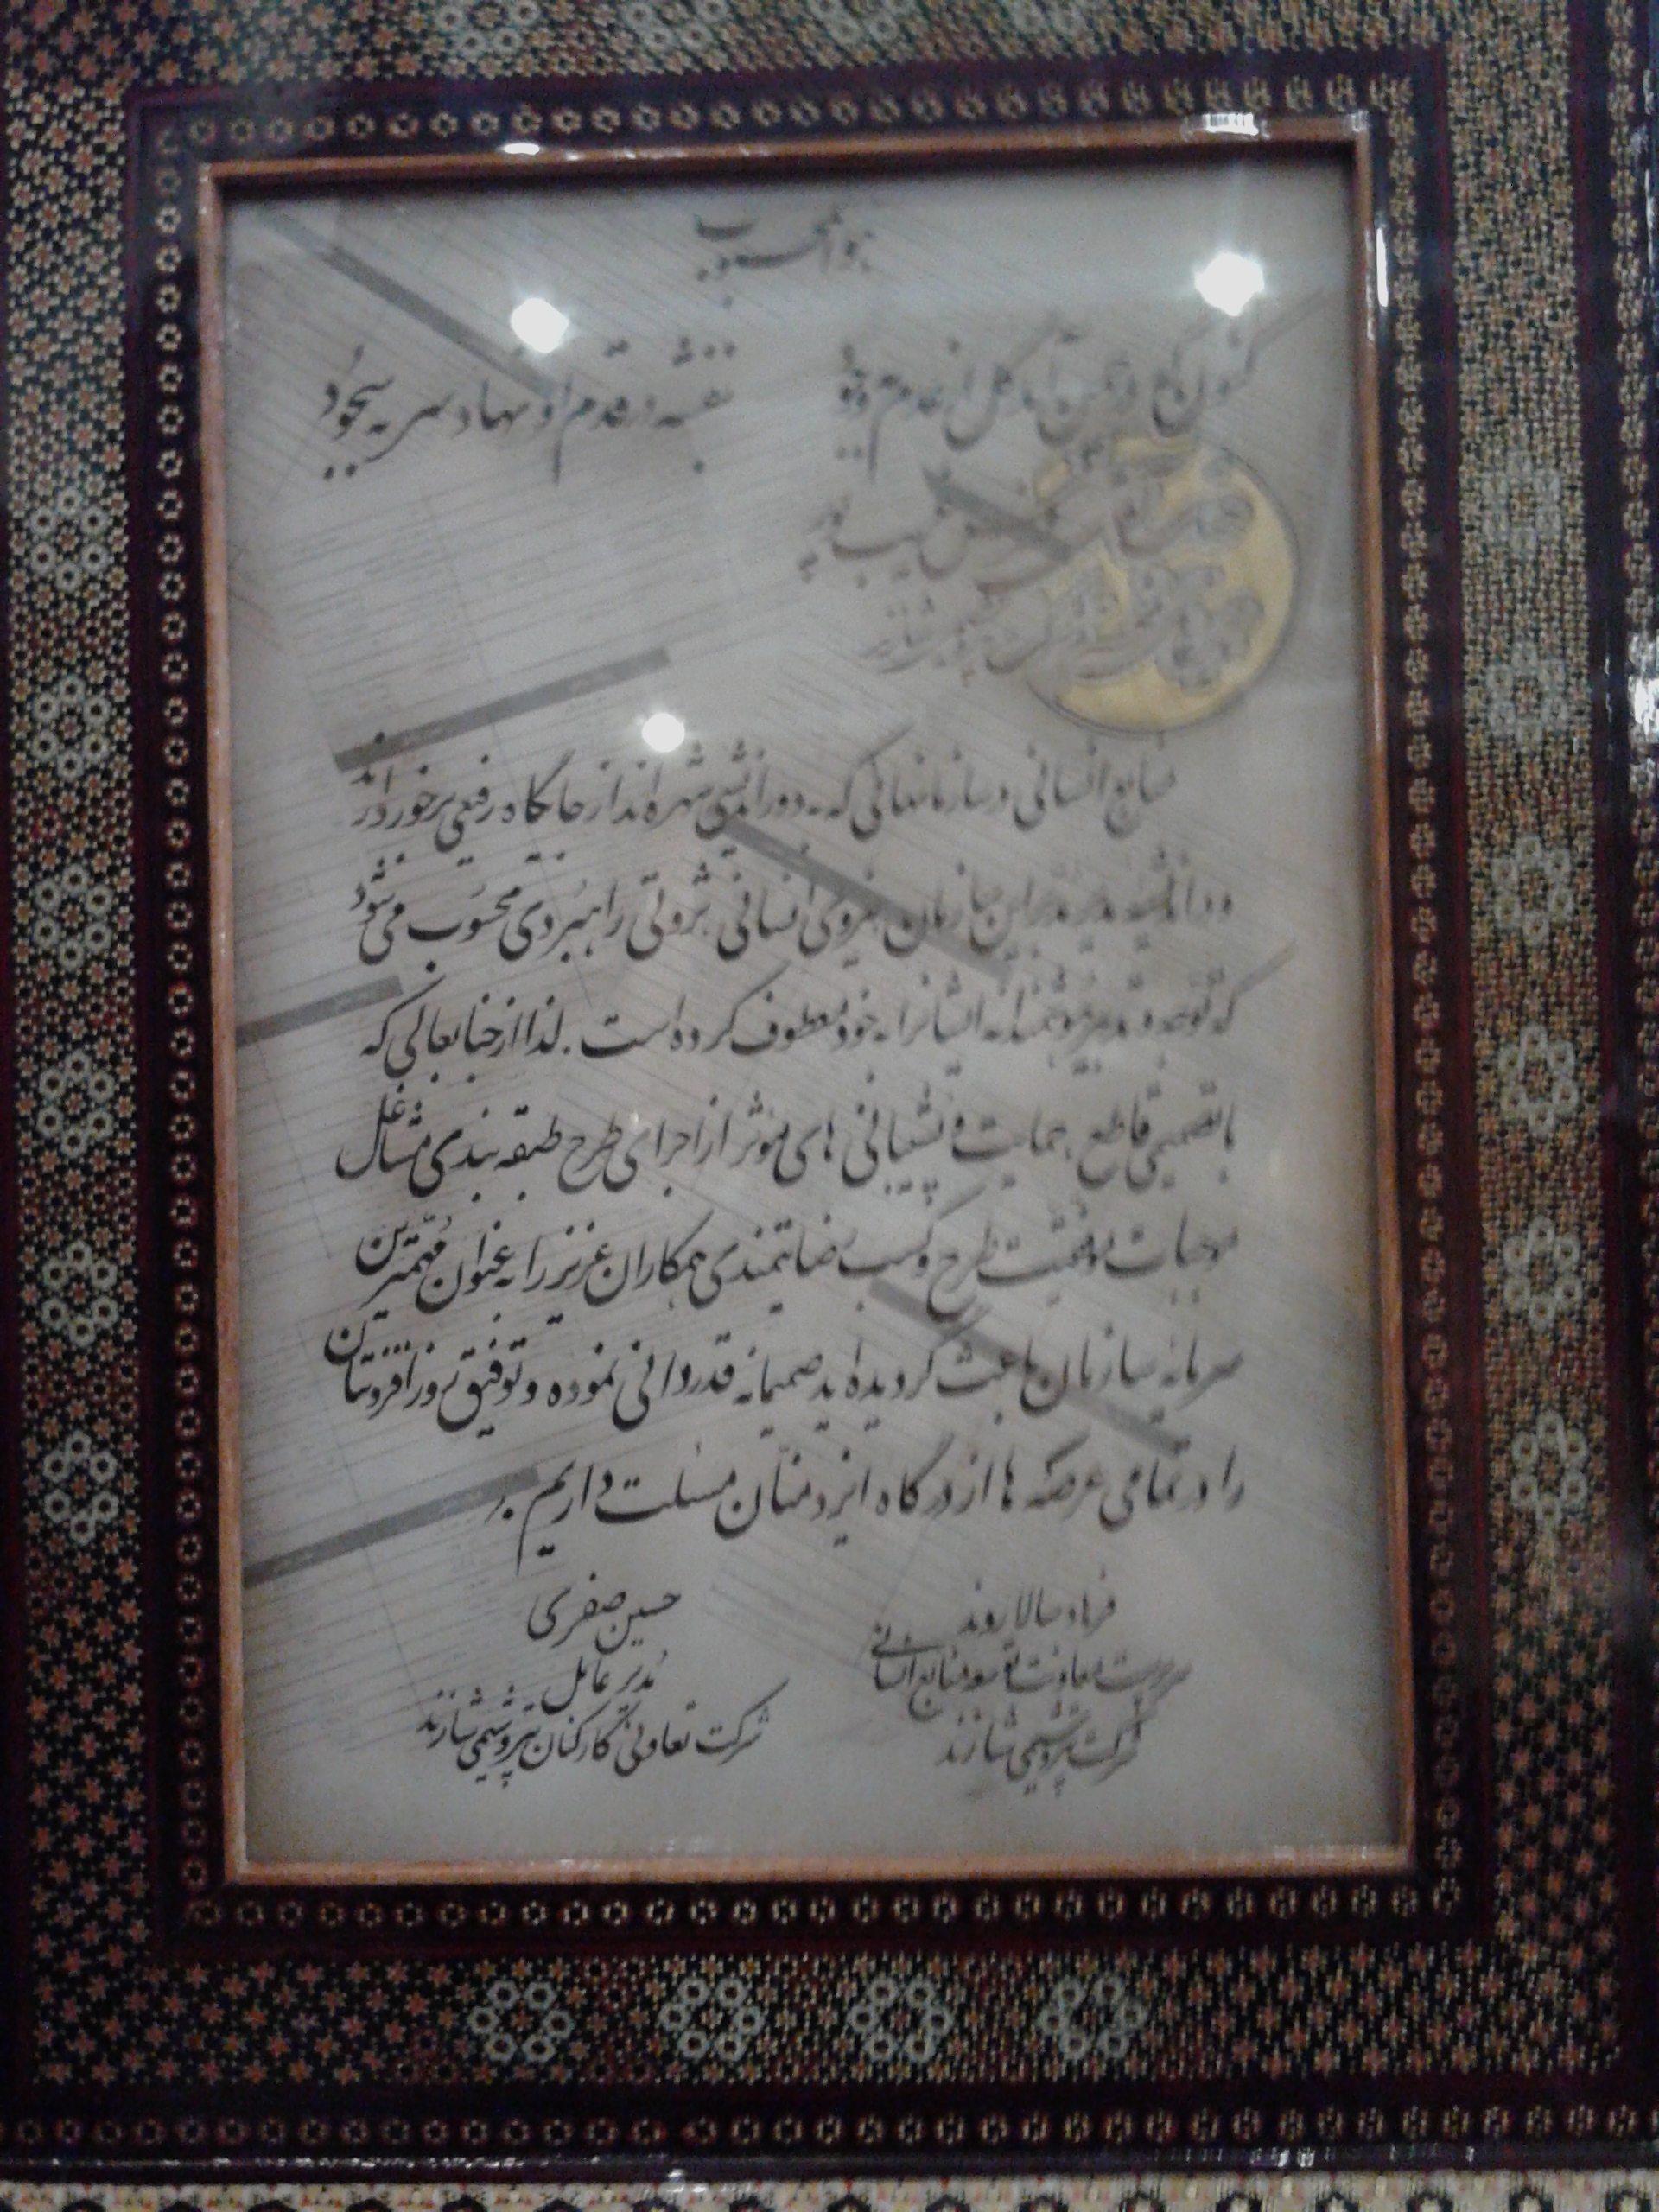 هوالمحبوب
کنون که در چمن آمد گل از عدم بوجود
بنفشه در قدم او نهاد سر به سجود
جناب آقای مهندس نقیب پور
شرکت پتروشیمی شازند
منابع انسانی در سازمانهائی که به دوراندیشی شهره اند از جایگاه رفیعی برخوردارند
و در اندیشه مدیر مدبر این سازمان نیروی انسانی ثروتی راهبردی محسوب می شود
که توجه و تدبیر هوشمندانه ایشانرا به خود معطوف کرده است. لذا از جنابعالی که
با تصمیمی قاطع، حمایت و پشتیبانی های موثر از اجرای طرح طبقه بندی مشاغل
موجبات موفقیت طرح و کسب رضایتمندی همکاران عزیز را به عنوان مهمترین
سرمایه سازمان باعث گردیده اید صمیمانه قدردانی نموده و توفیق روزافزونتان
را در تمامی عرصه ها از درگاه ایزد منان مسئلت داریم
فرهاد سالاروند
سرپرست معاونت توسعه منابع انسانی
شرکت پتروشیمی شازند
حسین صفری
مدیر عامل
شرکت تعاونی کارکنان پتروشیمی شازند